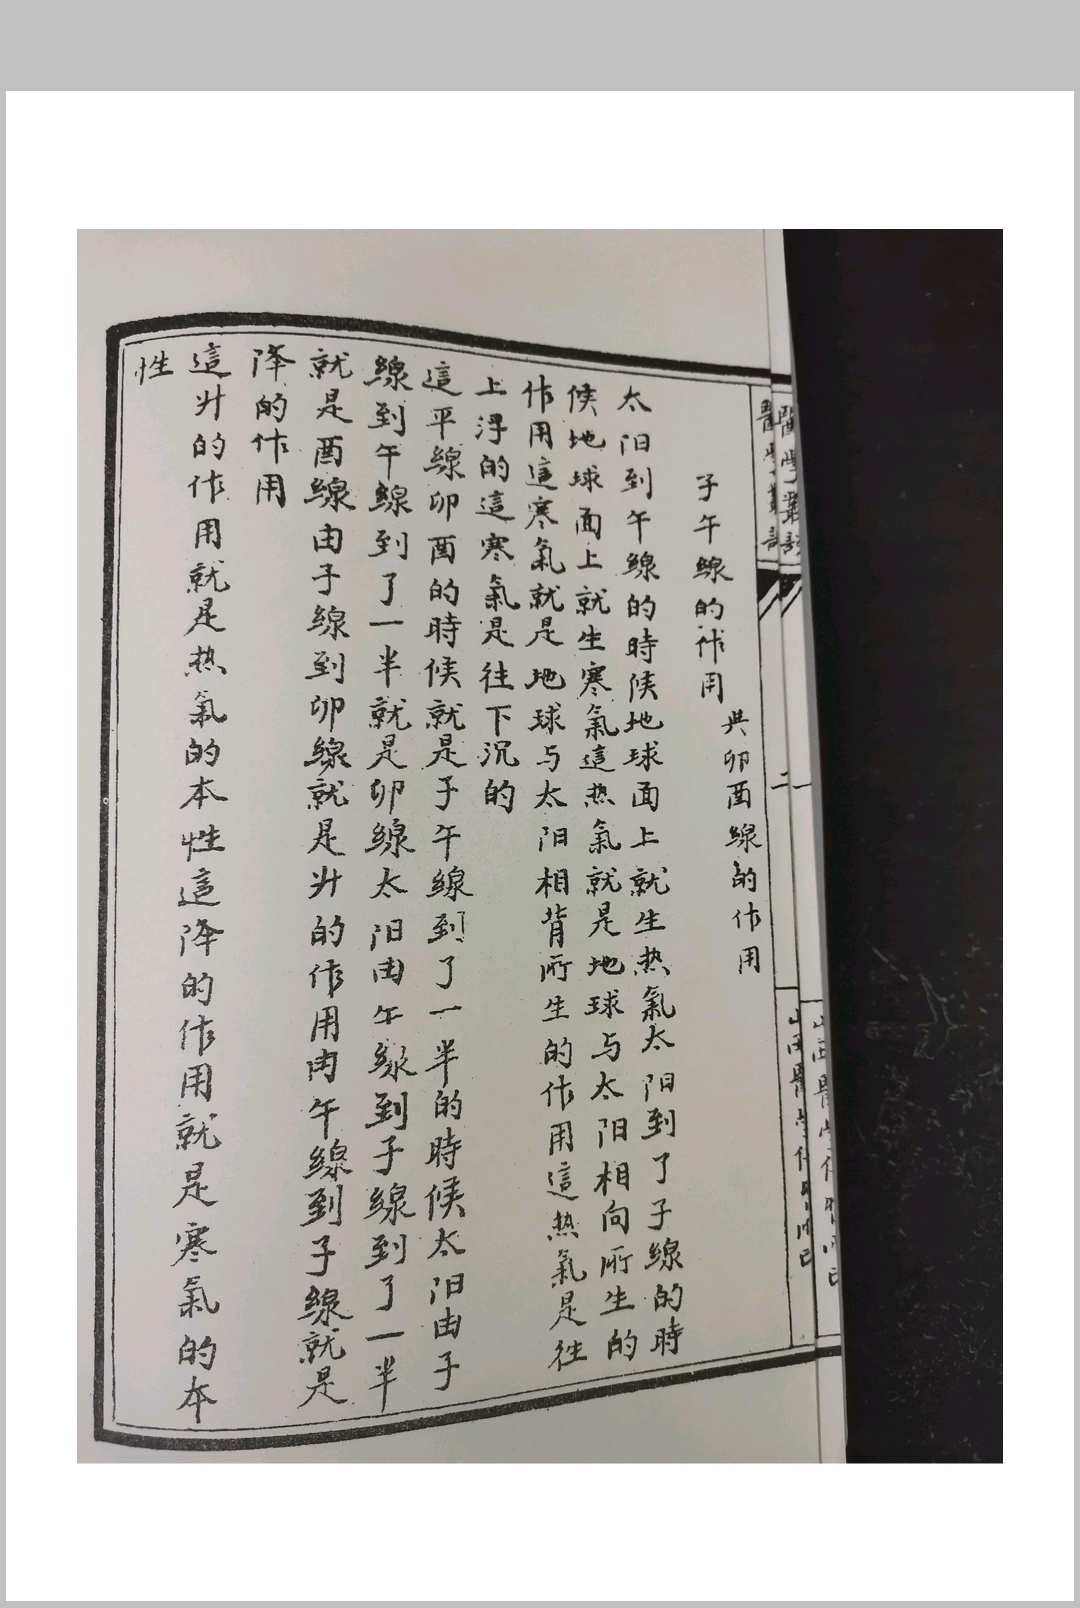 子午線的作用
共卯酉線的作用
太阳到午線的時候地球面上就生热氣太阳到了子線的時
候地球面上就生寒氣這热氣就是地球与太阳相向所生的
作用這寒氣就是地球与太阳相背所生的作用這热氣是往
上浮的這寒氣是往下沉的
這平線卯酉的時候就是子午線到了一半的時候太阳由子
線到午線到了一半就是卯線太阳由午線到子線到了一半
就是酉線由子線到卯線就是升的作用由午線到子線就是
降的作用
這升的作用就是热氣的本性這降的作用就是寒氣的本
性
二
一